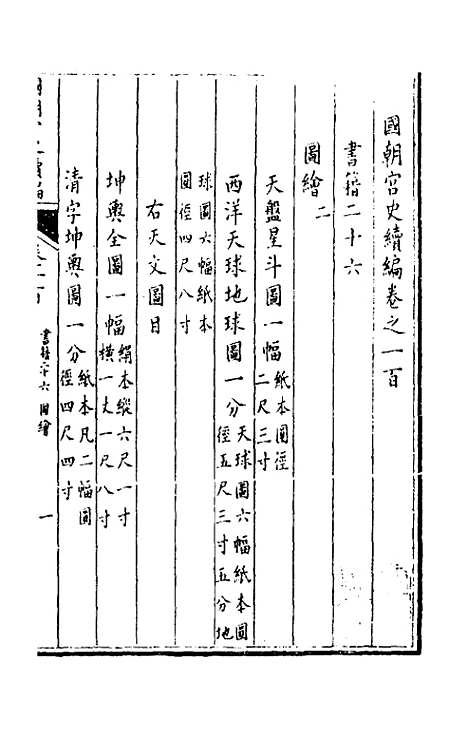 國朝宮史續編卷之一百
書籍二十六
圖繪二
天盤星斗圖一幅紙本圓徑二尺三寸
西洋天球地球圖一分天球圖六幅紙本圓徑五尺三寸五分地
球圖六幅紙本圓徑四尺八寸
右天文圖目
坤輿全圖一幅絹本縱六尺一寸橫一丈一尺八寸
清字坤輿圖一分紙本凡二幅圓徑四尺四寸
書籍二十六 圖繪
一